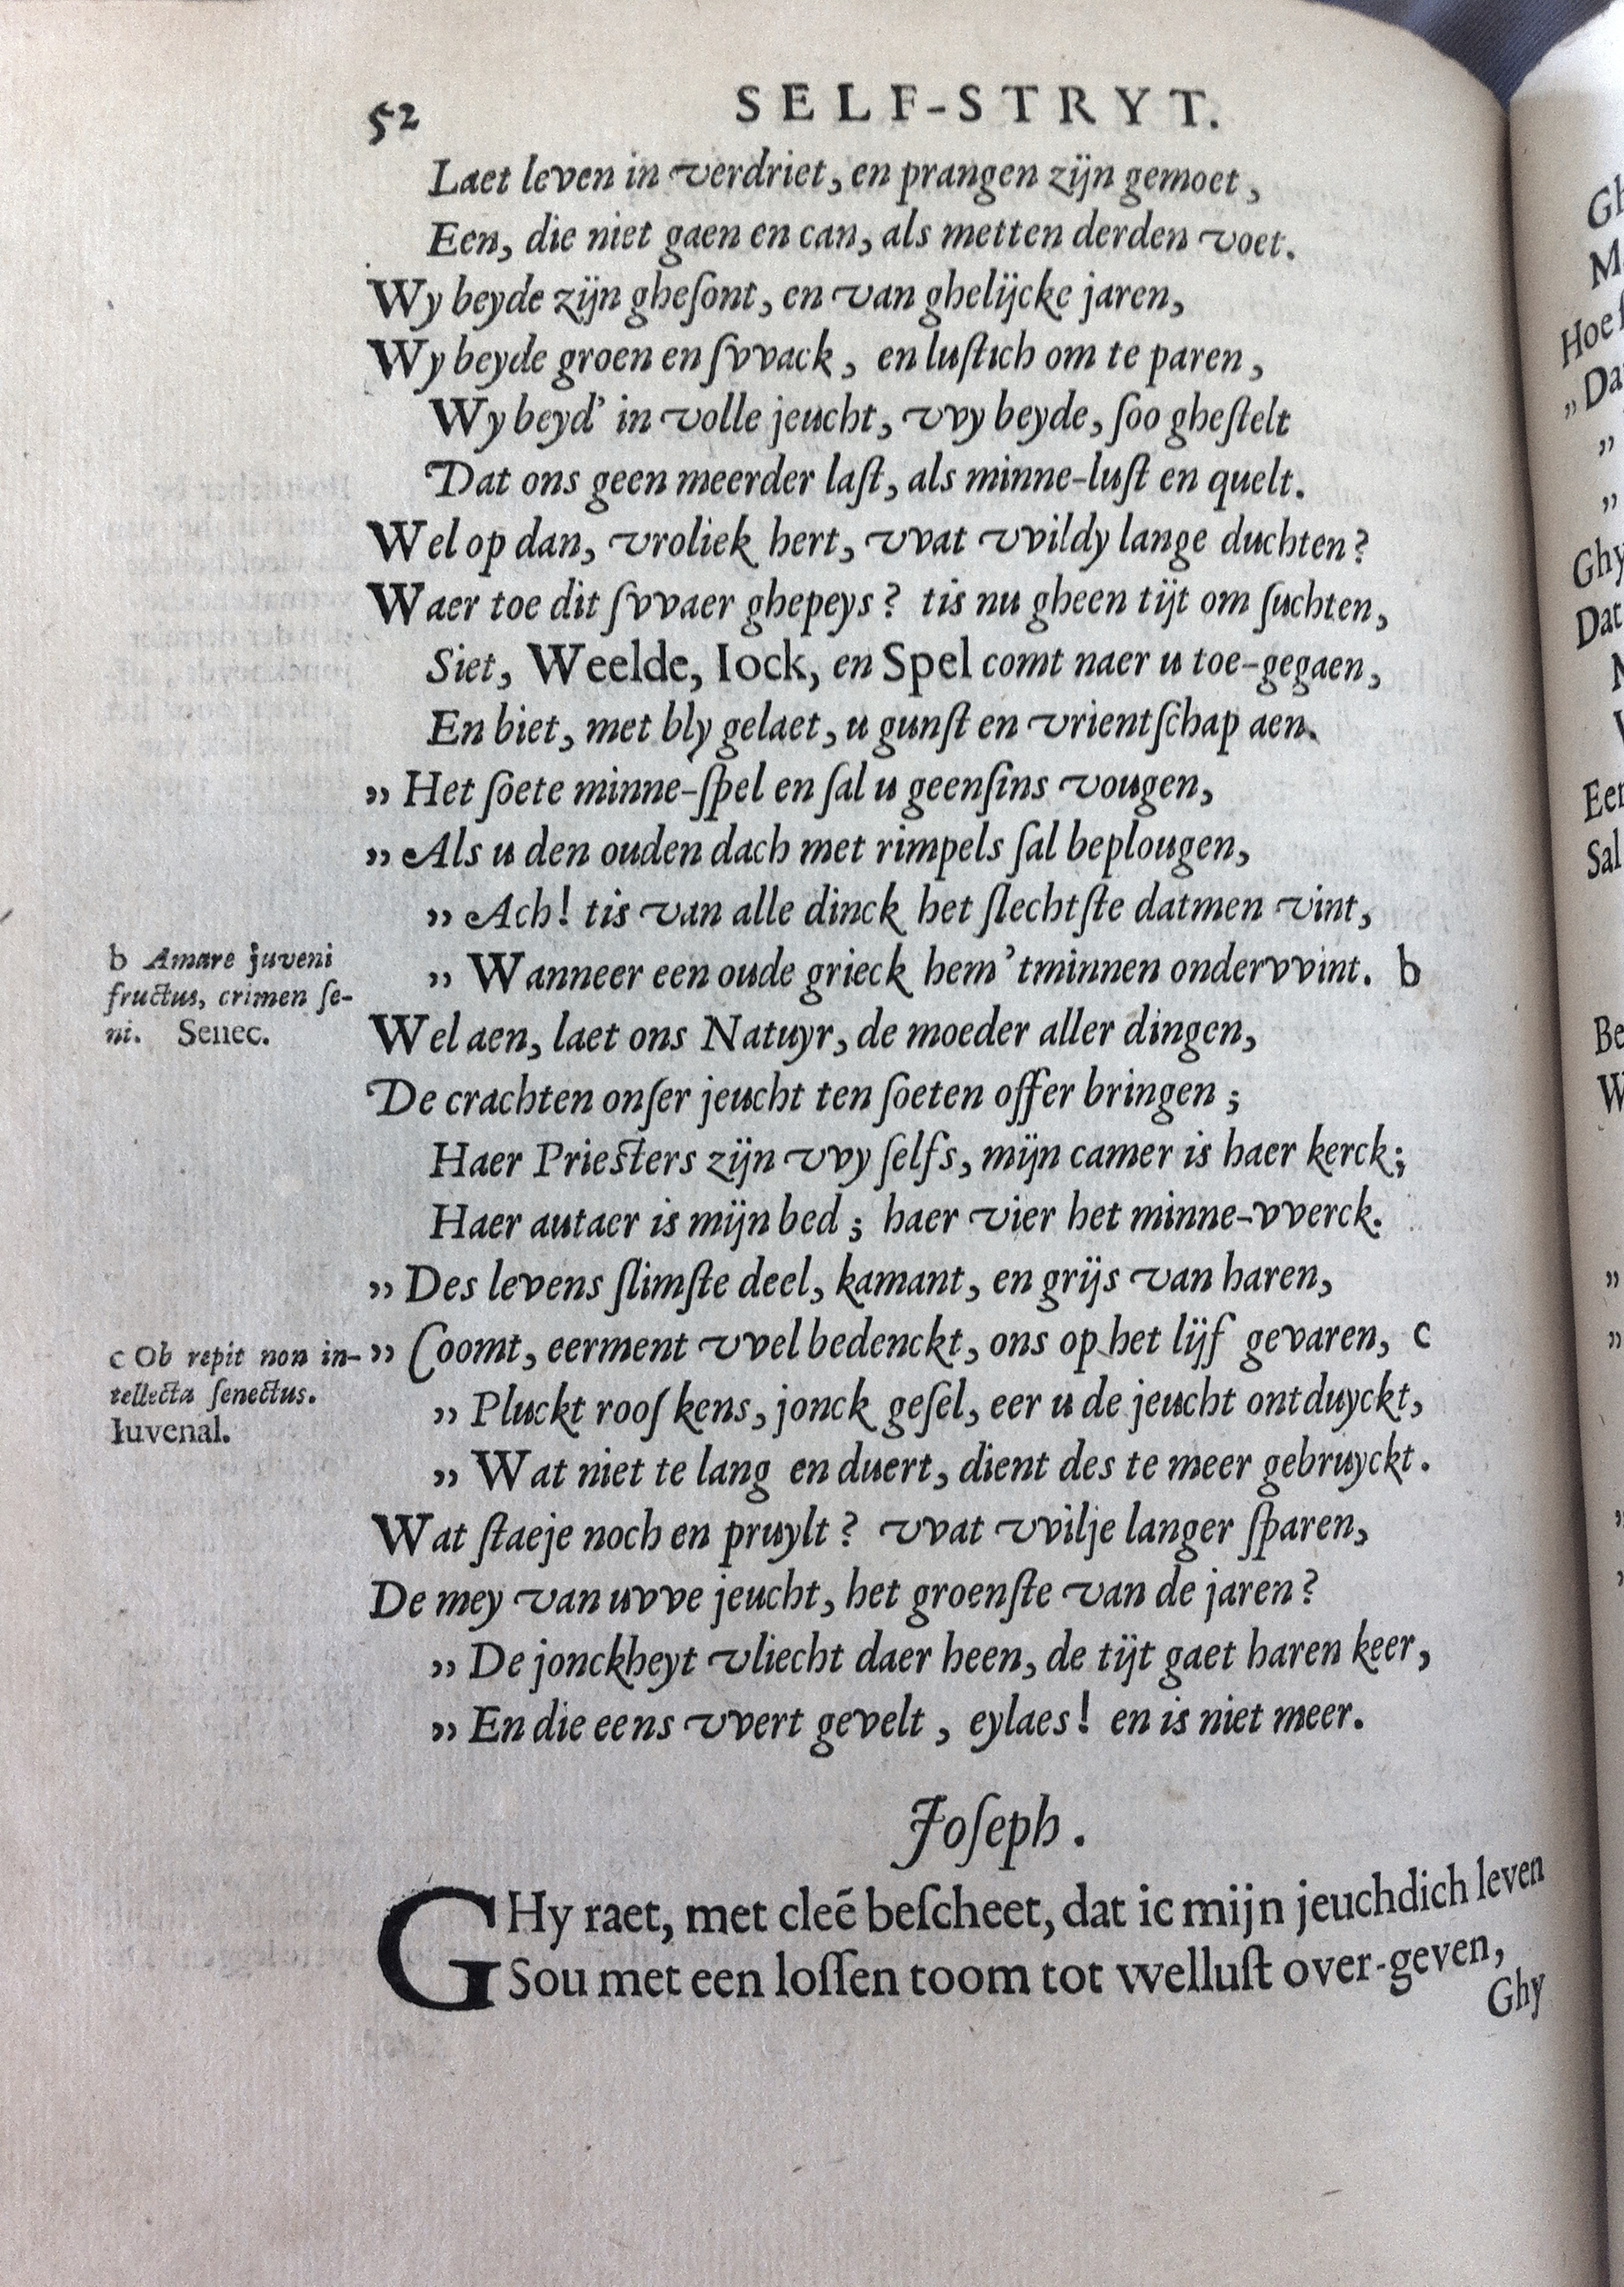 52
SELF-STRYT.
Laet leven in verdriet, en prangen zijn gemoet,
Een, die niet gaen en can, als metten derden voet.
Wy beyde zijn gheſont, en van ghelijcke jaren,
Wy beyde groen en ſvvack, en luſtich om te paren,
Wy beyd' in volle jeucht, vvy beyde, ſoo gheſtelt
Dat ons geen meerder laſt, als minne-luſt en quelt.
Wel op dan, vroliek hert, vvat vvildy lange duchten?
Waer toe dit ſvvaer ghepeys? tis nu gheen tijt om ſuchten,
Siet, Weelde, Iock, en Spel comt naer u toe-gegaen,
En biet, met bly gelaet, u gunſt en vrientſchap aen.
„ Het ſoete minne-ſpel en ſal u geenſins vougen,
„ Als u den ouden dach met rimpels ſal beplougen,
„ Ach! tis van alle dinck het ſlechtſte datmen vint,
„ Wanneer een oude grieck hem 'tminnen ondervvint. b
b Amare juveni
fructus, crimen ſe-
ni. Senec.
Wel aen, laet ons Natuyr, de moeder aller dingen,
De crachten onſer jeucht ten ſoeten offer bringen;
Haer Prieſters zijn vvy ſelfs, mijn camer is haer kerck;
Haer autaer is mijn bed; haer vier het minne-vverck.
„ Des levens ſlimſte deel, kamant, en grijs van haren,
„ Coomt, eerment vvel bedenckt, ons op het lijf gevaren, c
c Ob repit non in-
tellecta ſenectus.
Iuvenal.
„ Pluckt rooſ kens, jonck geſel, eer u de jeucht ontduyckt,
„ Wat niet te lang en duert, dient des te meer gebruyckt.
Wat ſtaeje noch en pruylt? vvat vvilje langer ſparen,
De mey van uvve jeucht, het groenſte van de jaren?
„ De jonckheyt vliecht daer heen, de tijt gaet haren keer,
„ En die eens vvert gevelt, eylaes! en is niet meer.
Joſeph.
GHy raet, met cleẽ beſcheet, dat ic mijn jeuchdich leven
Sou met een loſſen toom tot welluſt over-geven,
Ghy